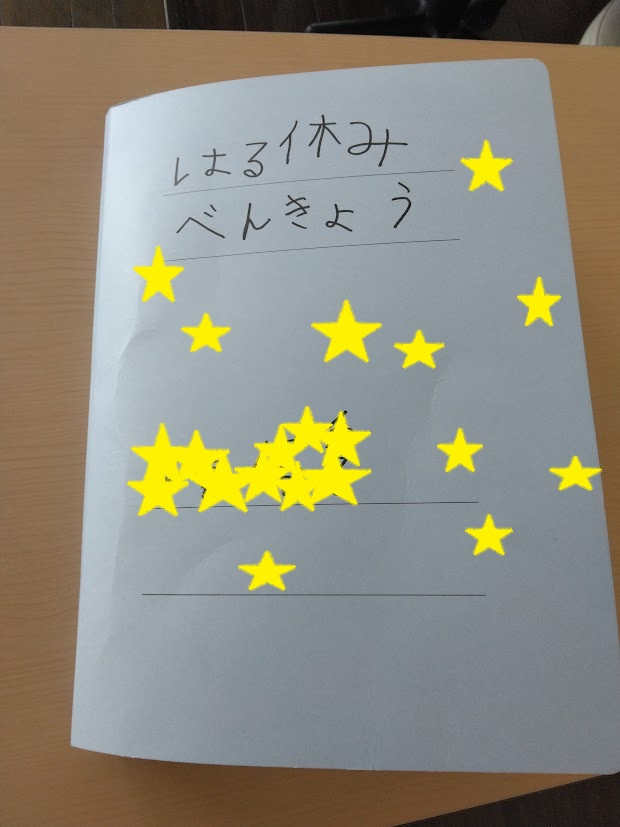 はる休み
べんきょう